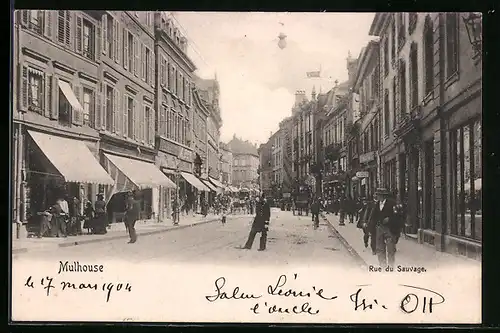 Mulhouse
Rue du Sauvage.
le 17 mars 1904
Salue Léonie
l'oncle